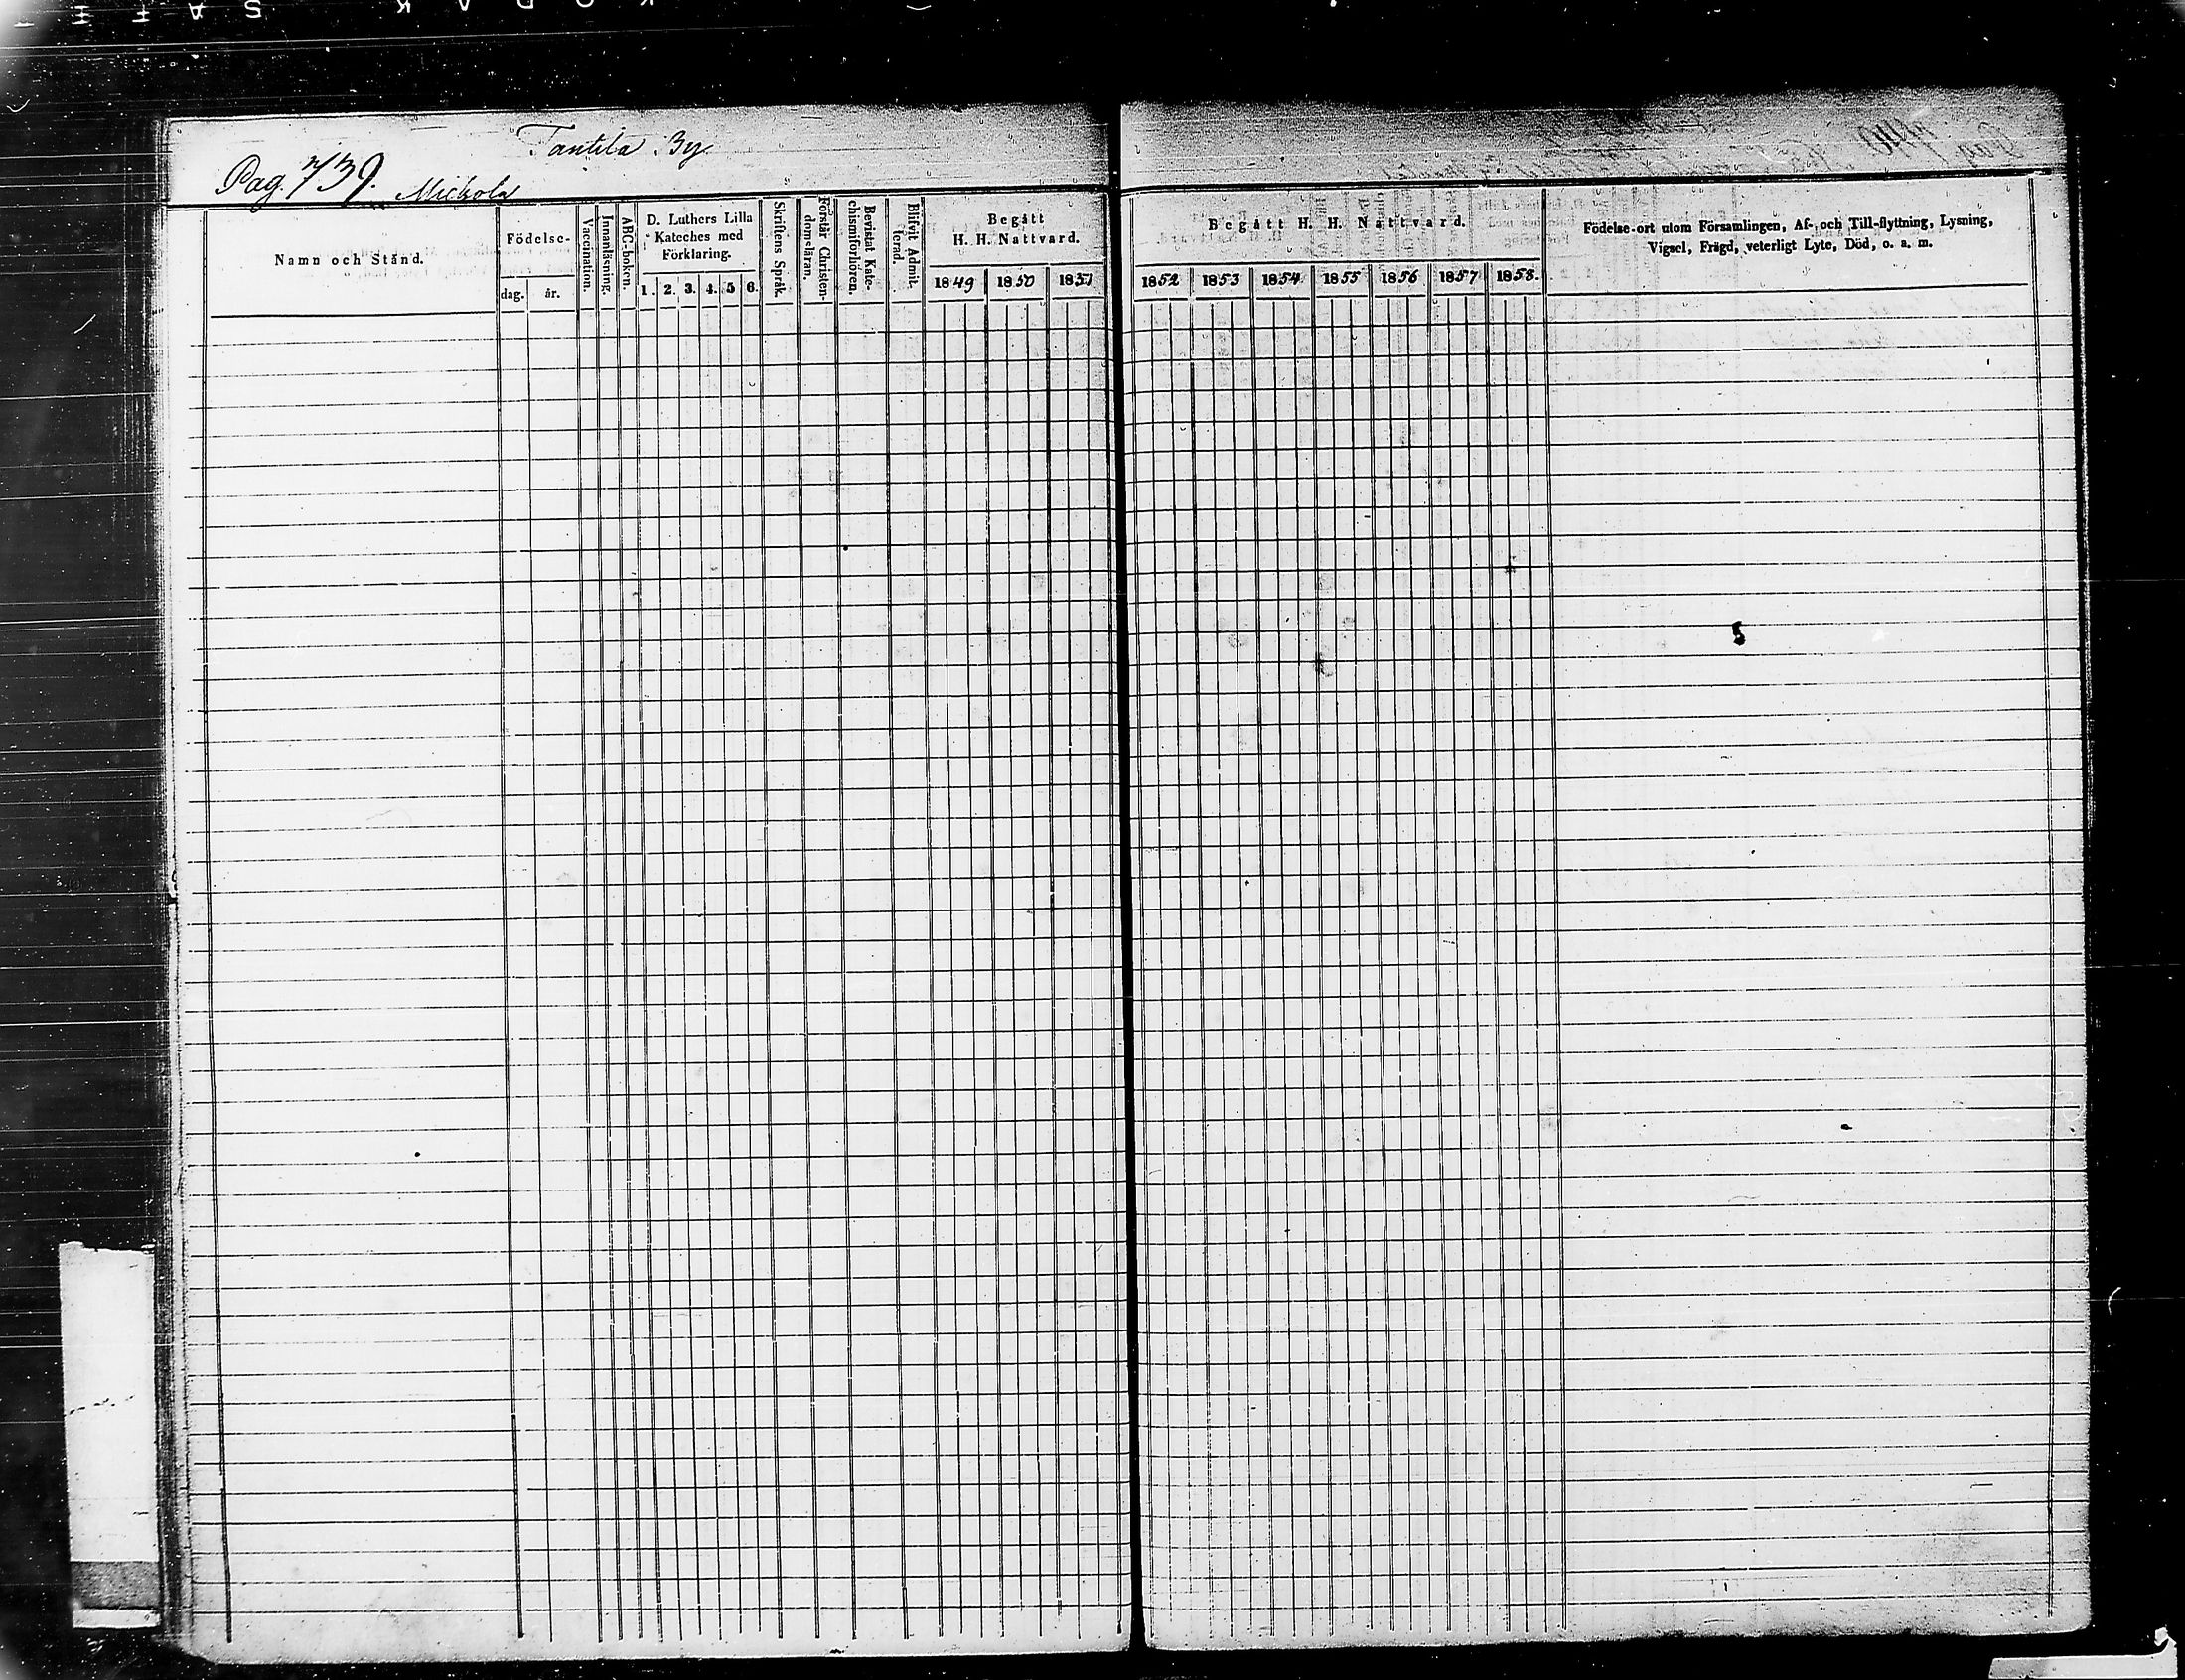 Tantila By
Pag. 739. Mickola
Namn och Stånd.
Födelse-
dag. år.
Vaccination.
Innanläsning.
ABC-boken.
D. Luthers Lilla
Kateches med
Förklaring.
1. 2. 3. 4. 5 6.
Skriftens Språk.
Förstår Christen-
domsläran.
Bevistat Kate-
chismiförhören.
Blifvit Admit-
terad.
Begått
H. H. Nattvard.
1849 1850 1851
Begått H. H. Nattvard.
1852 1853 1854 1855 1856 1857 1858.
Födelse-ort utom Församlingen, Af- och Till-flyttning, Lysning,
Vigsel, Frägd, veterligt Lyte, Död, o. a. m.